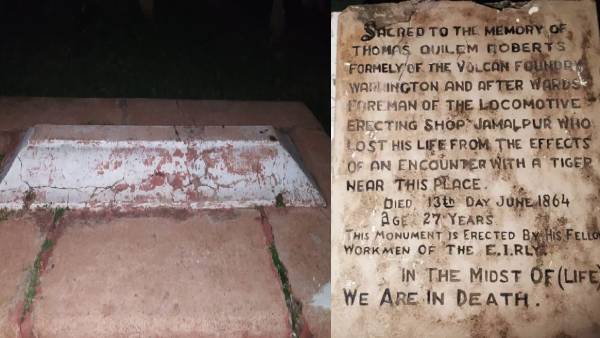 SACRED TO THE MEMORY OF
THOMAS QUILEM ROBERTS
FORMELY OF THE VOLCAN FOUNDRY
WARRINGTON AND AFTER WARDS
FOREMAN OF THE LOCOMOTIVE
ERECTING SHOP JAMALPUR WHO
LOST HIS LIFE FROM THE EFFECTS
OF AN ENCOUNTER WITH A TIGER
NEAR THIS PLACE.
DIED 13th DAY JUNE 1864
AGE 27 YEARS
THIS MONUMENT IS ERECTED BY HIS FELLO
WORKMEN OF THE E.I.RLY.
IN THE MIDST OF (LIFE)
WE ARE IN DEATH.